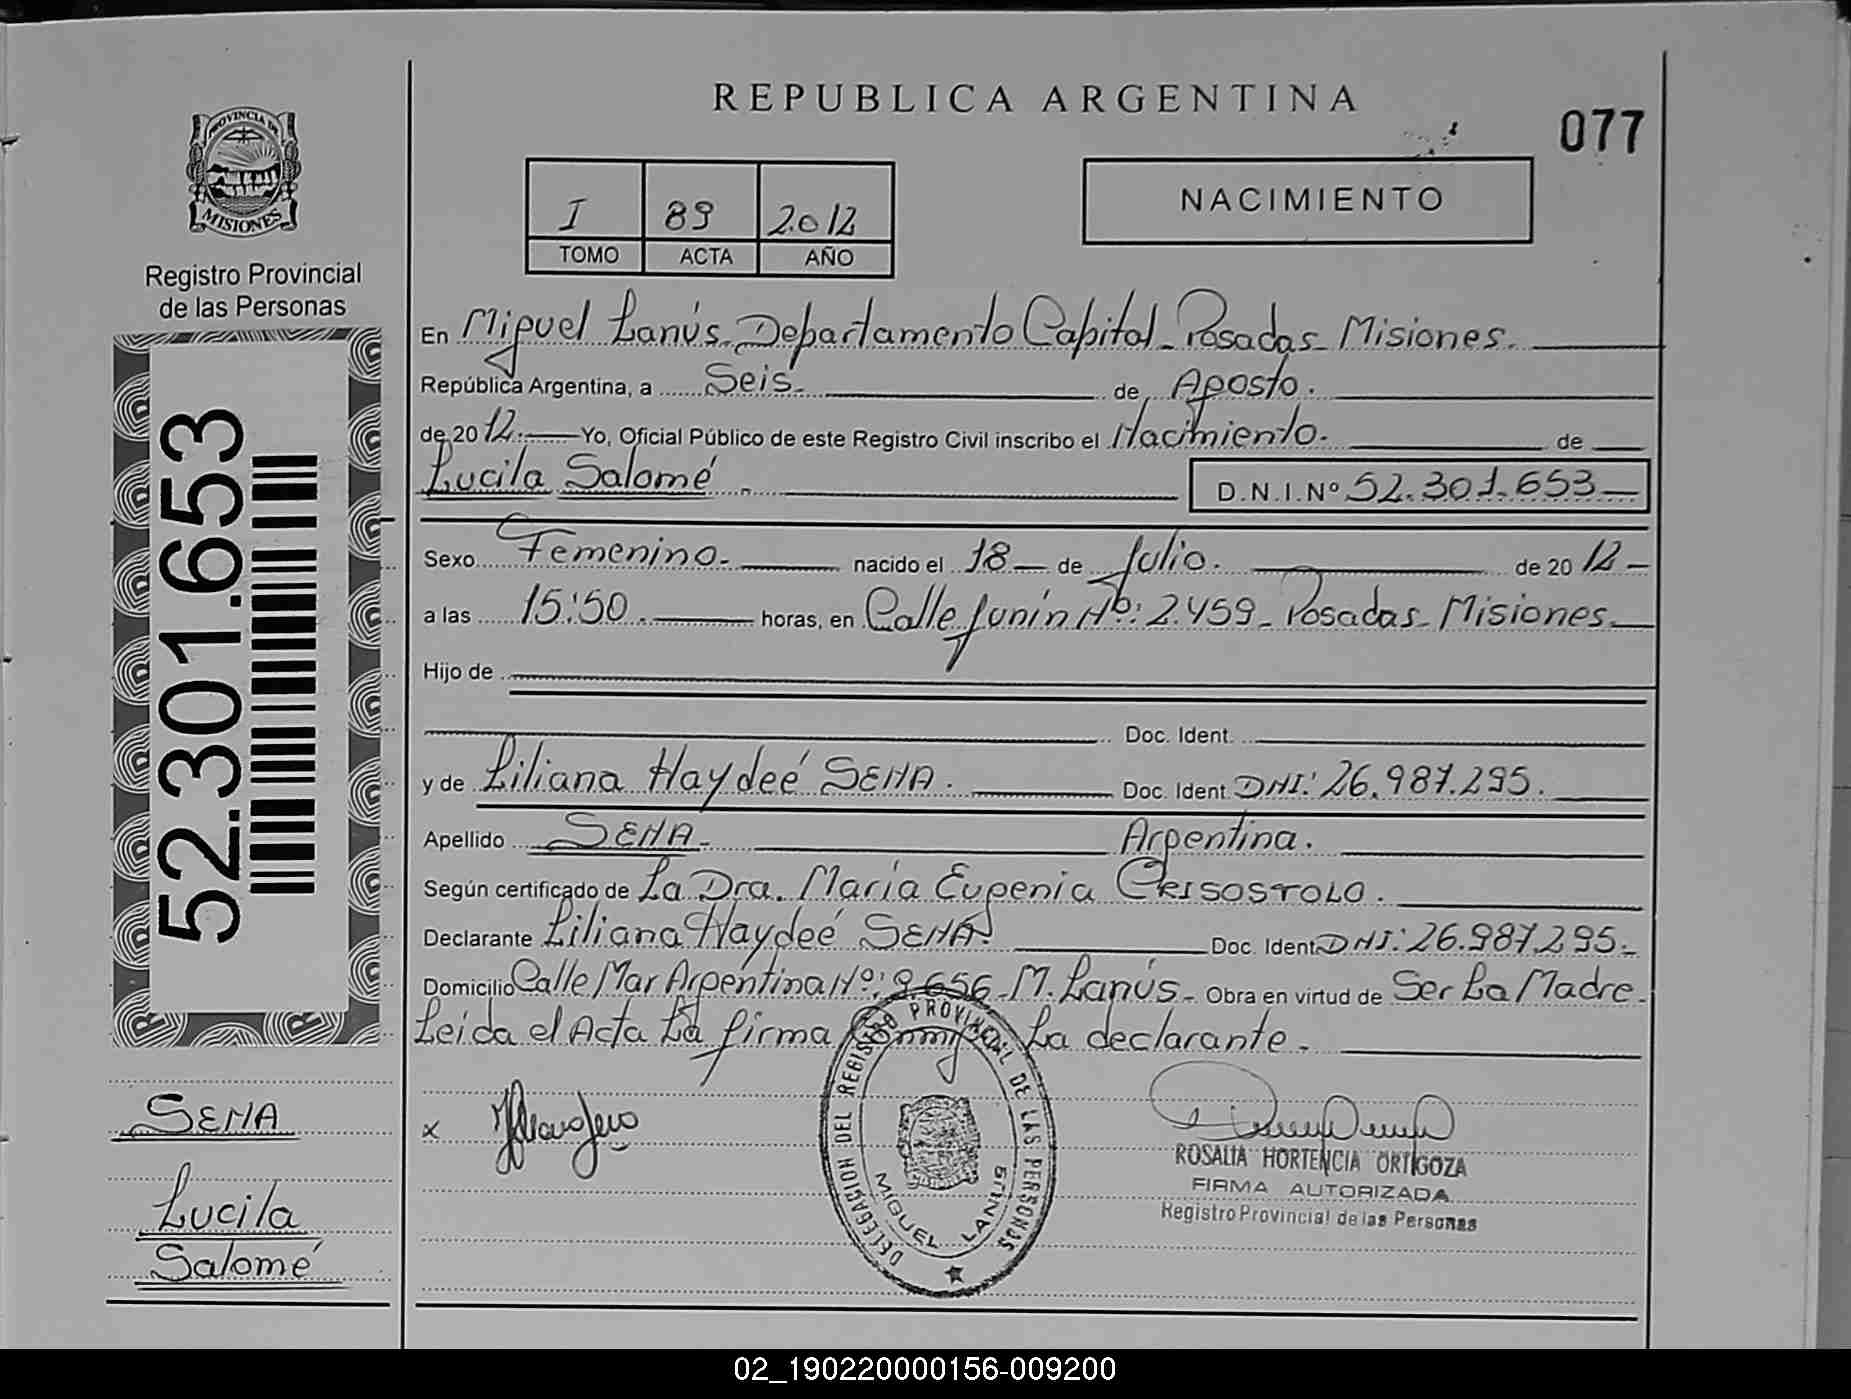 REPUBLICA ARGENTINA
077
PROVINCIA DE
MISIONES
Registro Provincial
de las Personas
I 89 2.012
TOMO ACTA AÑO
NACIMIENTO
En Miguel Lanús. Departamento Capital - Posadas - Misiones.
República Argentina, a Seis. de Agosto.
de 2012. Yo, Oficial Público de este Registro Civil inscribo el Nacimiento. de
Lucila Salomé D.N.I.Nº 52.301.653
Sexo Femenino. nacido el 18 de Julio. de 2012
a las 15:50. horas, en Calle Junín Nº: 2.459 - Posadas - Misiones.
Hijo de
Doc. Ident.
y de Liliana Haydeé SENA. Doc. Ident. DNI: 26.987.295.
Apellido SENA. Argentina.
Según certificado de La Dra. María Eugenia CRISOSTOLO.
Declarante Liliana Haydeé SENA. Doc. Ident. DNI: 26.987.295.
Domicilio Calle Mar Argentina Nº: 9.656 - M. Lanús. Obra en virtud de Ser La Madre.
Leida el Acta La firma La declarante.
52.301.653
SENA
Lucila
Salomé
x
DELEGACION DEL REGISTRO PROVINCIAL DE LAS PERSONAS
MIGUEL LANUS
ROSALIA HORTENCIA ORTIGOZA
FIRMA AUTORIZADA
Registro Provincial de las Personas
02_190220000156-009200